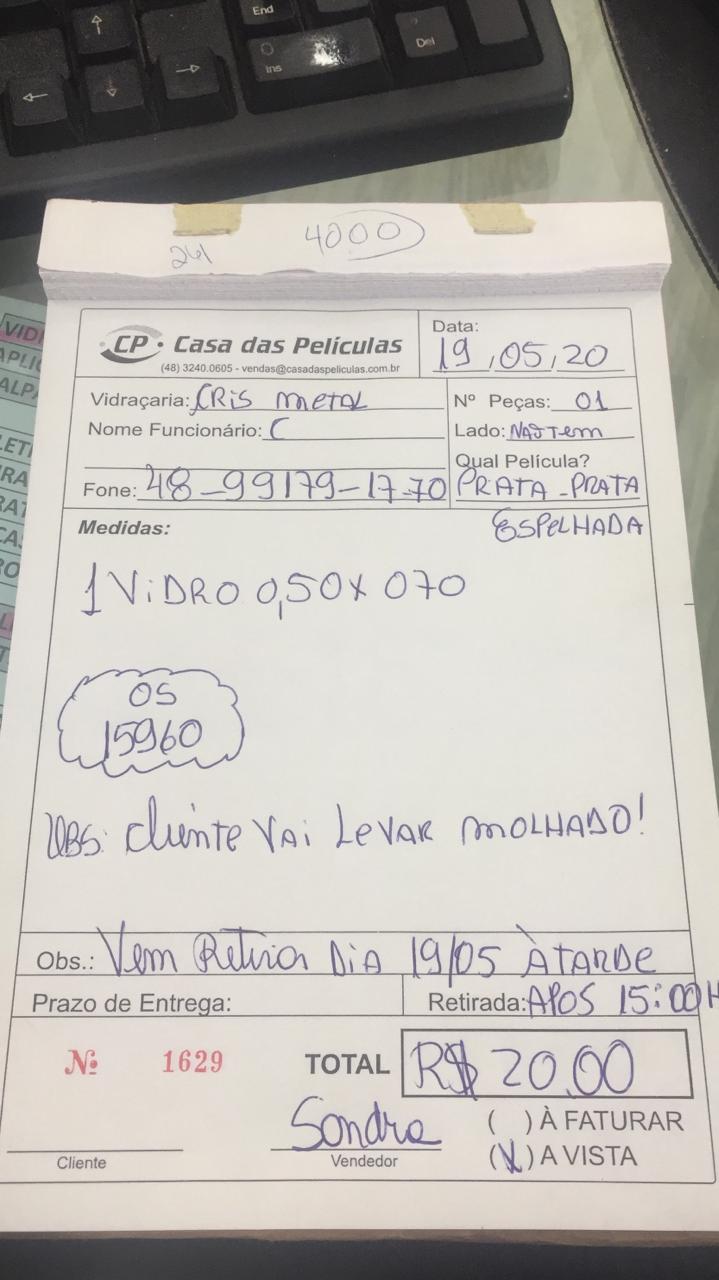 End
Ins
Del
261
4000
CP • Casa das Películas
(48) 3240.0605 - vendas@casadaspeliculas.com.br
Data:
19,05,20
Vidraçaria: CRIS METAL
Nº Peças: 01
Nome Funcionário: C
Lado: NÃO TEM
Qual Película?
Fone: 48-99179-1770
PRATA-PRATA
ESPELHADA
Medidas:
1 VIDRO 0,50X 070
OS
15960
OBS: cliente VAI LEVAR MOLHADO!
Obs.: Vem Retirar DIA 19/05 À TARDE
Prazo de Entrega:
Retirada: APOS 15:00H
Nº 1629
TOTAL R$ 20,00
Sondra
( ) À FATURAR
Cliente
Vendedor
(X) A VISTA